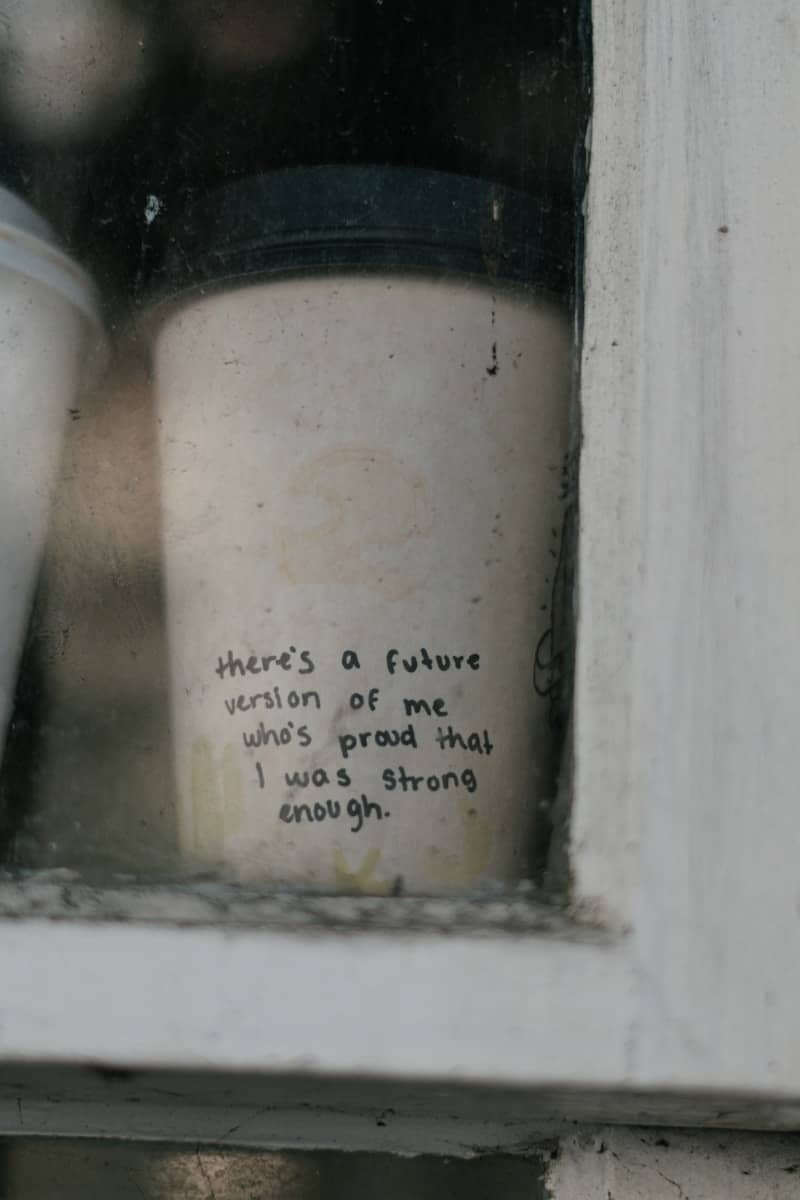 there's a future
version of me
who's proud that
I was strong
enough.